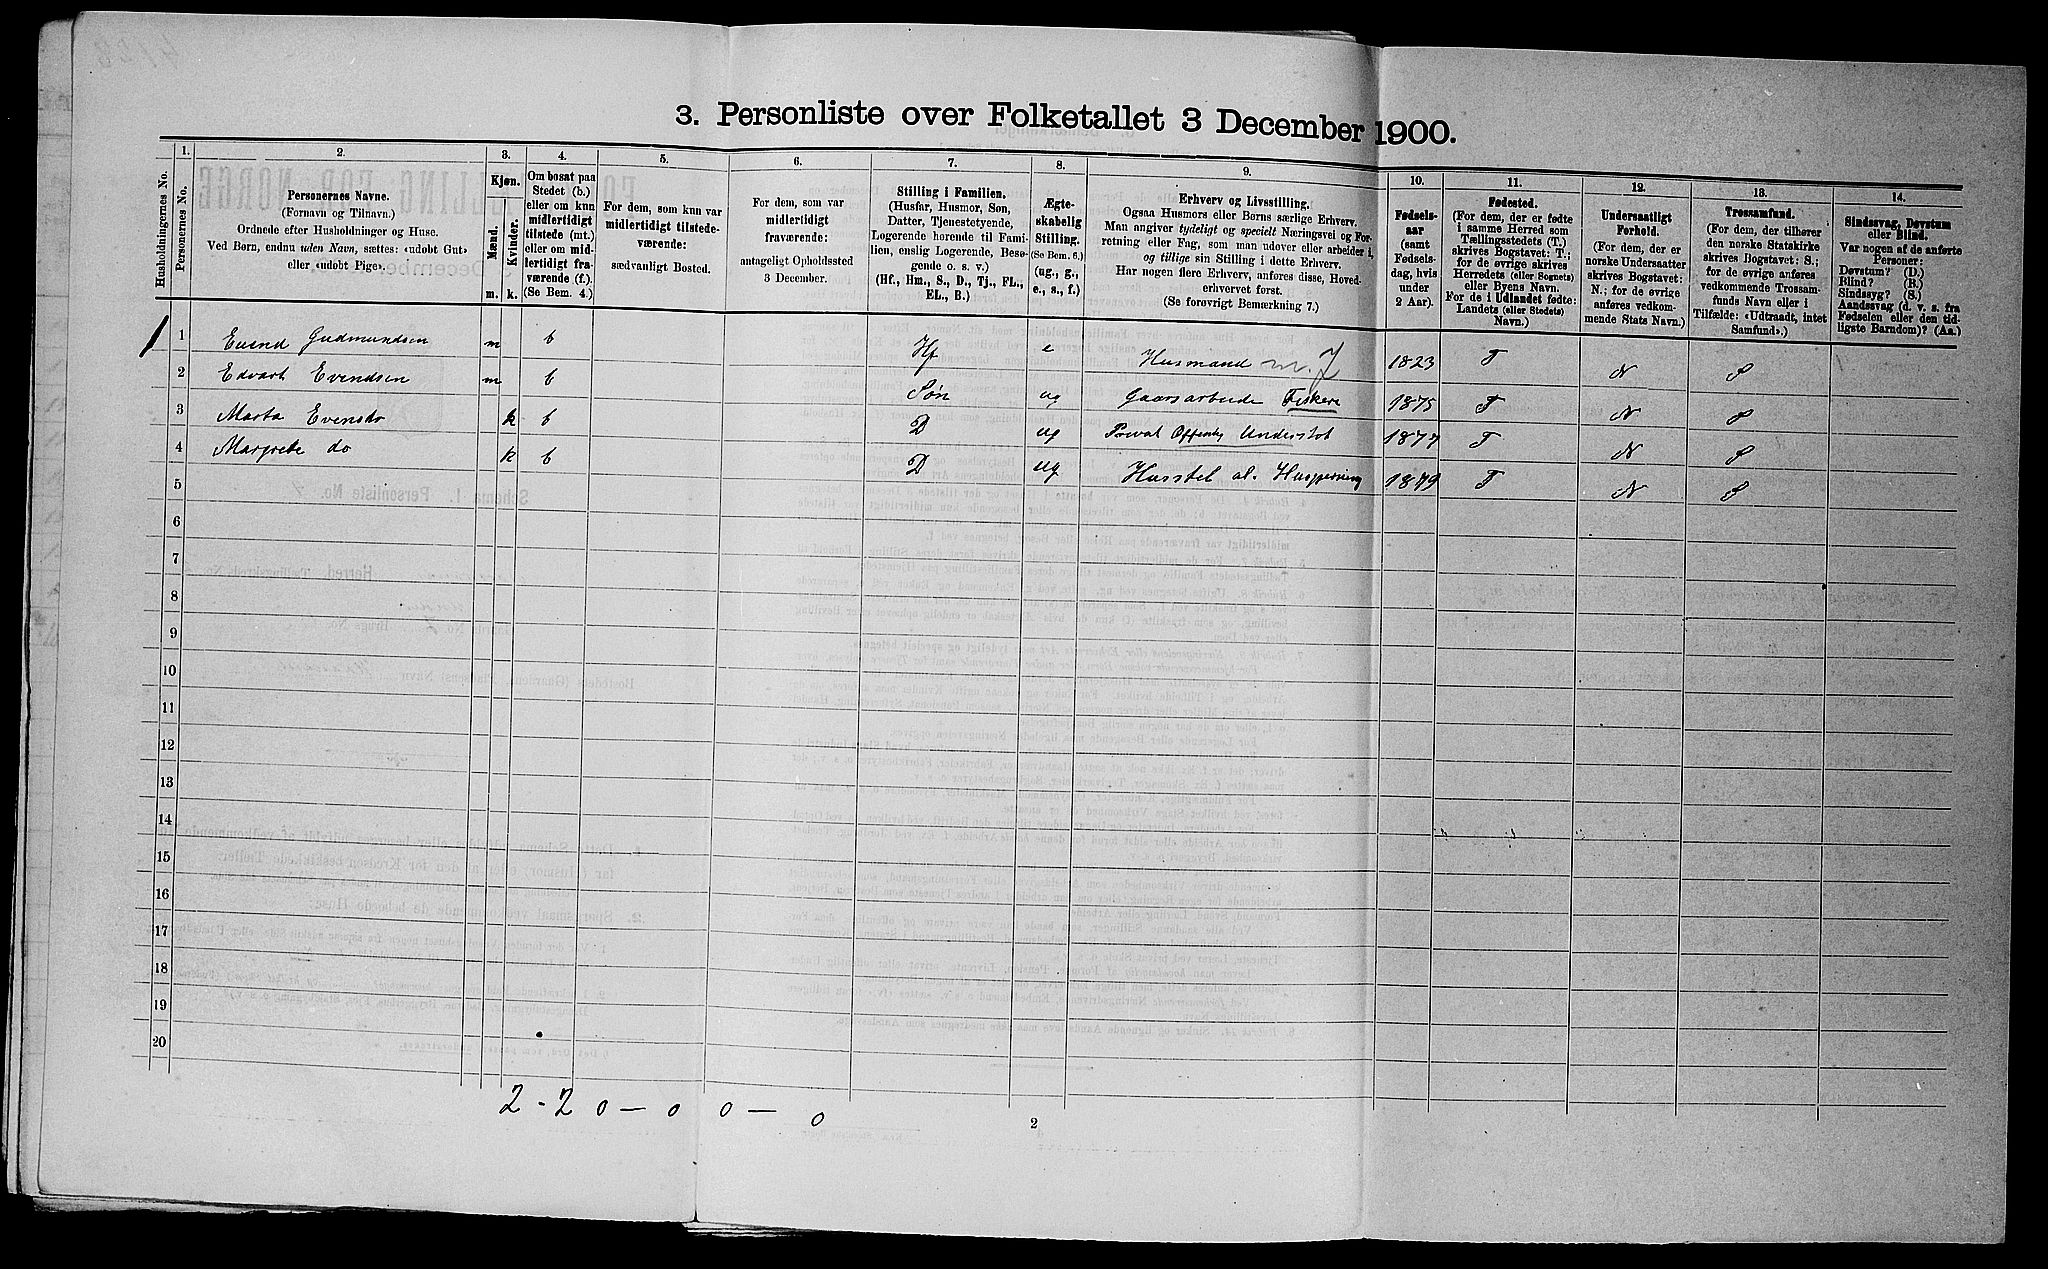 3. Personliste over Folketallet 3 December 1900.
Husholdningernes No.
1.
Personernes No.
2.
Personernes Navne.
(Fornavn og Tilnavn.)
Ordnede efter Husholdninger og Huse.
Ved Børn, endnu uden Navn, sættes: «udøbt Gut»
eller «udøbt Pige».
3.
Kjøn.
Mænd.
Kvinder.
m.
k.
4.
Om bosat paa
Stedet (b.)
eller om kun
midlertidigt
tilstede (mt.)
eller om mid-
lertidigt fra-
værende (f.).
(Se Bem. 4.)
5.
For dem, som kun var
midlertidigt tilstede-
værende:
sædvanligt Bosted.
6.
For dem, som var
midlertidigt
fraværende:
antageligt Opholdssted
3 December.
7.
Stilling i Familien.
(Husfar, Husmor, Søn,
Datter, Tjenestetyende,
Logerende hørende til Fami-
lien, enslig Logerende, Besø-
gende o. s. v.)
(Hf., Hm., S., D., Tj., FL.,
EL., B.)
8.
Ægte-
skabelig
Stilling.
(Se Bem. 6.)
(ug., g.,
e., s., f.)
9.
Erhverv og Livsstilling.
Ogsaa Husmors eller Børns særlige Erhverv.
Man angiver tydeligt og specielt Næringsvei og For-
retning eller Fag, som man udøver eller arbeider i,
og tillige sin Stilling i dette Erhverv.
Har nogen flere Erhverv, anføres disse, Hoved-
erhvervet først.
(Se forøvrigt Bemærkning 7.)
10.
Fødsels-
aar
(samt
Fødsels-
dag, hvis
under
2 Aar).
11.
Fødested.
(For dem, der er fødte
i samme Herred som
Tællingsstedets (T.)
skrives Bogstavet: T.;
for de øvrige skrives
Herredets (eller Sognets)
eller Byens Navn.
For de i Udlandet fødte:
Landets (eller Stedets)
Navn.)
12.
Undersaatligt
Forhold.
(For dem, der er
norske Undersaatter
skrives Bogstavet:
N.; for de øvrige
anføres vedkom-
mende Stats Navn.)
13.
Trossamfund.
(For dem, der tilhører
den norske Statskirke
skrives Bogstavet: S.;
for de øvrige anføres
vedkommende Trossam-
funds Navn eller i
Tilfælde: «Udtraadt, intet
Samfund».)
14.
Sindssvag, Døvstum
eller Blind.
Var nogen af de anførte
Personer:
Døvstum? (D.)
Blind? (B.)
Sindssyg? (S.)
Aandssvag (d. v. s. fra
Fødselen eller den tid-
ligste Barndom)? (Aa.)
1 1 Evend Gudmundsen m b Hf e Husmand m. J 1823 T N S
2 Edvart Evendsen m b Søn ug Gaarsarbeide Fisker 1875 T N S
3 Marta Evensdr k b D ug Offentlig Understøt 1877 T N S
4 Margrete do k b D ug Husstel 1879 T N S
5
6
7
8
9
10
11
12
13
14
15
16
17
18
19
20
2 - 2 0 — 0 0 — 0
2